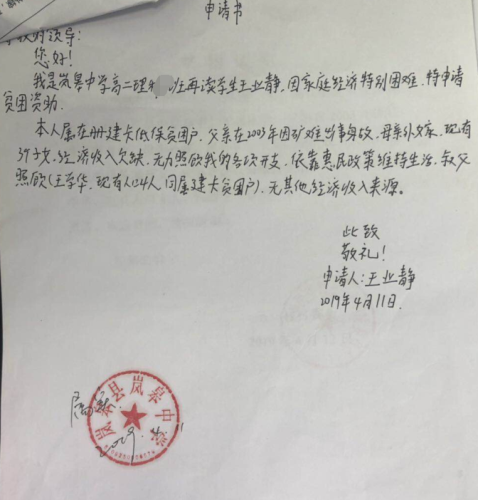 申请书
学校领导:
您好!
我是岚皋中学高二理 班在读学生王业静,因家庭经济特别困难,特申请
贫困资助。
本人属在册建卡低保贫困户,父亲在2003年因矿难出事身故,母亲外嫁,现有
子女,经济收入欠缺,无力照顾我的各项开支,依靠惠民政策维持生活,叔父
照顾(王学华,现有人口4人,同属建卡贫困户),无其他经济收入来源。
此致
敬礼!
申请人:王业静
2019年4月11日.
属实.
岚皋县岚皋中学
2019.